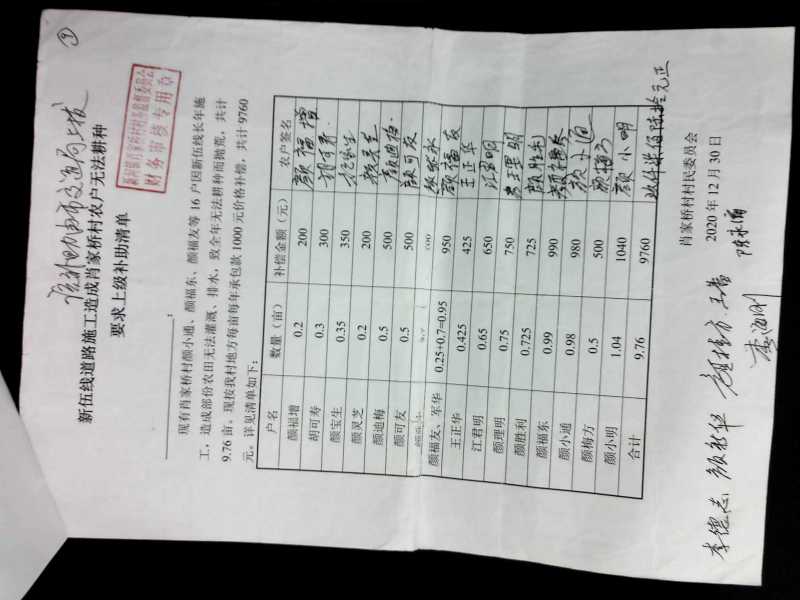 ①
该补助由市交通局上拨
新伍线道路施工造成肖家桥村农户无法耕种
要求上级补助清单
财务审核专用章
现有肖家桥村颜小通、颜福东、颜福友等 16 户因新伍线长年施
工，造成部份农田无法灌溉、排水，致全年无法耕种而抛荒，共计
9.76 亩。现按我村地方每亩每年承包款 1000 元价格补偿，共计 9760
元。详见清单如下：
户名 数量（亩） 补偿金额（元） 农户签名
颜福增 0.2 200 颜福增
胡可寿 0.3 300 胡可寿
颜宝生 0.35 350
颜灵芝 0.2 200 颜灵芝
颜迪梅 0.5 500 颜迪梅
颜可友 0.5 500 颜可友
颜福友、军华 0.25+0.7=0.95 950 颜福友
王正华 0.425 425 王正华
江君明 0.65 650 江君明
颜理明 0.75 750 颜理明
颜胜利 0.725 725 颜胜利
颜福东 0.99 990
颜小通 0.98 980 颜小通
颜梅方 0.5 500 颜梅方
颜小明 1.04 1040 颜小明
合计 9.76 9760 玖仟柒佰陆拾元正
肖家桥村村民委员会
2020 年 12 月 30 日
李德志